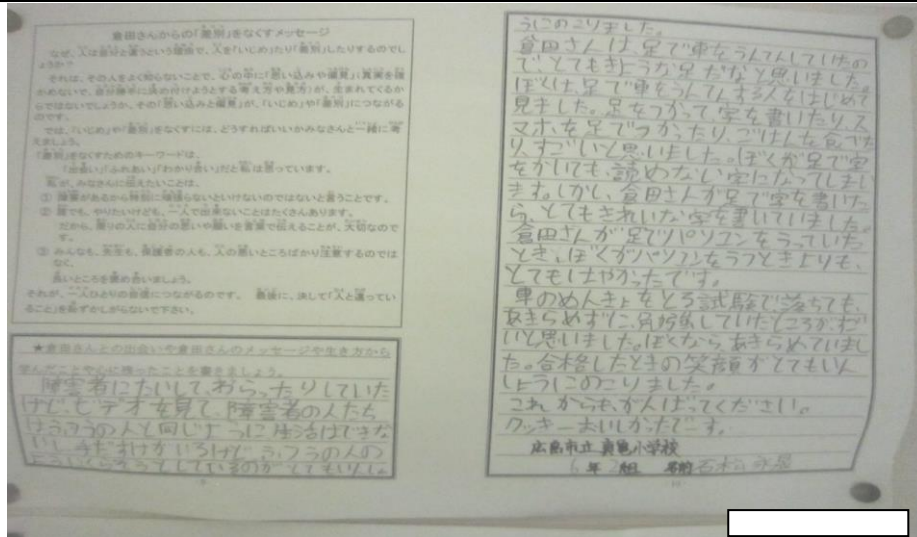 倉田さんからの「差別」をなくすメッセージ
なぜ、人は自分と違うという理由で、人を「いじめ」たり「差別」したりするのでし
ょうか?
それは、その人をよく知らないことで、心の中に「思い込みや偏見」(真実を確
かめないで、自分勝手に決め付けようとする考え方や見方)が、生まれてくるか
らではないでしょうか。その「思い込みと偏見」が、「いじめ」や「差別」につながる
のです。
では、「いじめ」や「差別」をなくすには、どうすればいいかみなさんと一緒に考
えましょう。
「差別」をなくすためのキーワードは、
「出会い」「ふれあい」「わかり合い」だと私は思っています。
私が、みなさんに伝えたいことは、
① 障害があるから特別に頑張らないといけないのではないと言うことです。
② 誰でも、やりたいけども、一人で出来ないことはたくさんあります。
だから、周りの人に自分の思いや願いを言葉で伝えることが、大切なので
す。
③ みんなも、先生も、保護者の人も、人の悪いところばかり注意するのでは
なく、
良いところを褒め合いましょう。
それが、一人ひとりの自信につながるのです。 最後に、決して「人と違ってい
ること」を恥ずかしがらないで下さい。
★倉田さんとの出会いや倉田さんのメッセージや生き方から
学んだことや心に残ったことを書きましょう。
障害者にたいして、わらったりしていた
けど、ビデオを見て、障害者の人たち
はふつうの人と同じように生活はできな
い 手だすけがいるけど、ふつうの人の
ようにくらそうとしているのがとてもいんしょ
うにのこりました。
倉田さんは、足で車をうんてんしていたの
で、とてもきような足だなと思いました。
ぼくは、足で車をうんてんする人をはじめて
見ました。足をつかって字を書いたり、ス
マホを足でつかったり、ごはんを食べた
り、すごいと思いました。ぼくが足で字
をかいても、読めない字になってしまい
ます。しかし、倉田さんが足で字を書いた
ら、とてもきれいな字を書いていました。
倉田さんが足でパソコンをうっていた
とき、ぼくがパソコンをうつときよりも、
とてもはやかったです。
車のめんきょをとる試験で落ちても、
あきらめずに、勉強していたところが、すご
いと思いました。ぼくなら、あきらめていまし
た。合格したときの笑顔がとてもいん
しょうにのこりました。
これからも、がんばってください。
クッキーおいしかったです。
広島市立真亀小学校
6年2組 名前